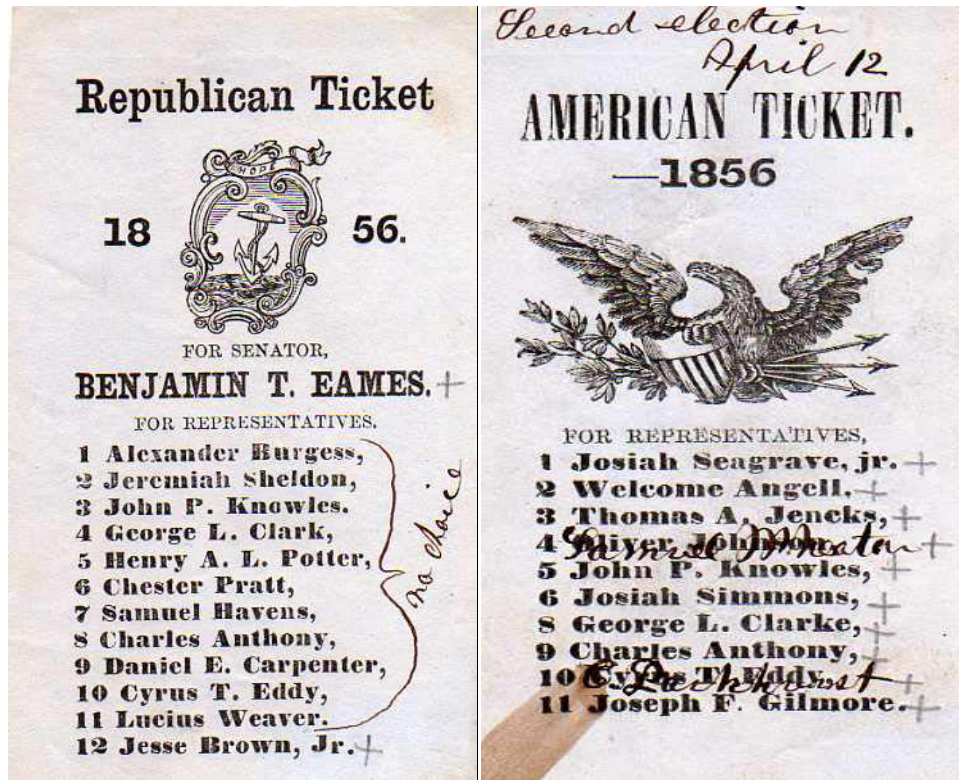 Republican Ticket
HOPE
18 56.
FOR SENATOR,
BENJAMIN T. EAMES. +
FOR REPRESENTATIVES.
1 Alexander Burgess,
2 Jeremiah Sheldon,
3 John P. Knowles.
4 George L. Clark,
5 Henry A. L. Potter,
6 Chester Pratt,
7 Samuel Havens,
8 Charles Anthony,
9 Daniel E. Carpenter,
10 Cyrus T. Eddy,
11 Lucius Weaver.
12 Jesse Brown, Jr. +
no choice
Second election
April 12
AMERICAN TICKET.
—1856
FOR REPRESENTATIVES,
1 Josiah Seagrave, jr. +
2 Welcome Angell. +
3 Thomas A. Jencks, +
4 Oliver Johnson +
Samuel
5 John P. Knowles, +
6 Josiah Simmons, +
8 George L. Clarke, +
9 Charles Anthony, +
10 Cyrus T. Eddy +
11 Joseph F. Gilmore. +